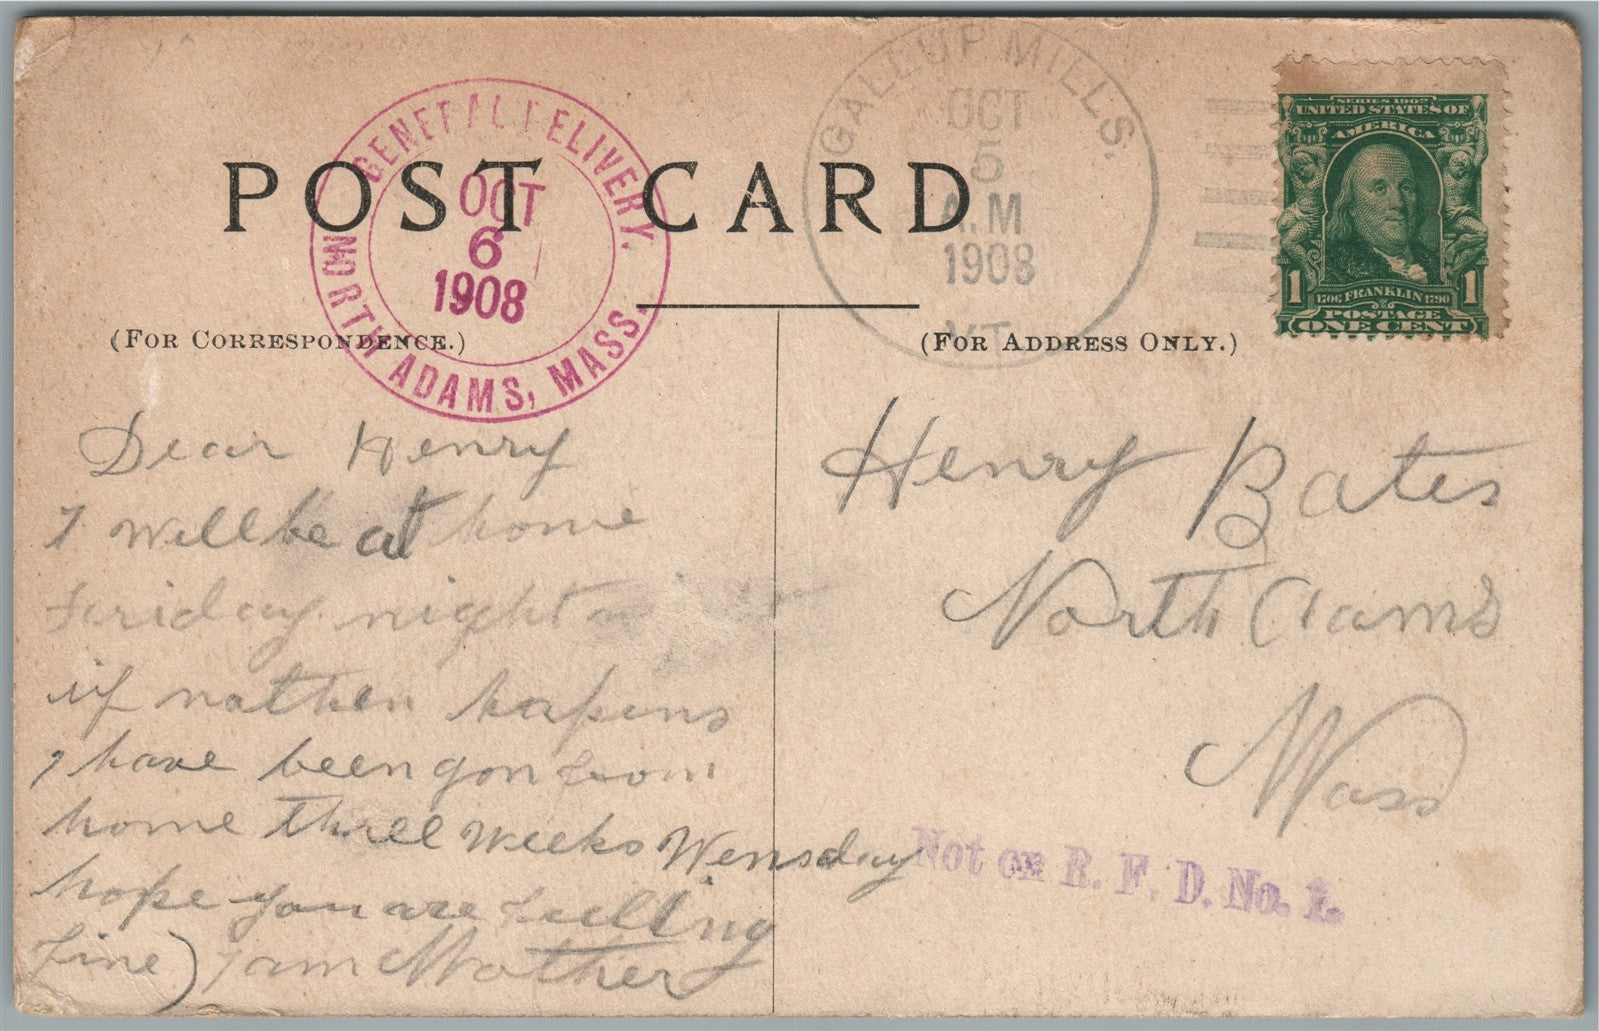 POST CARD
GENERAL DELIVERY.
OCT
6
1908
NORTH ADAMS, MASS.
GALLUP MILLS.
OCT
5
A.M
1908
VT.
SERIES 1902
UNITED STATES OF
AMERICA
1 1706 FRANKLIN 1790 1
POSTAGE
ONE CENT
(FOR CORRESPONDENCE.)
Dear Henry
I well be at home
Fariday night
if nothen hapens
I have been gon from
home three weeks Wensday
hope you are feelling
fine) I am Mother
(FOR ADDRESS ONLY.)
Henry Bates
North Adams
Mass
Not on R. F. D. No. 1.